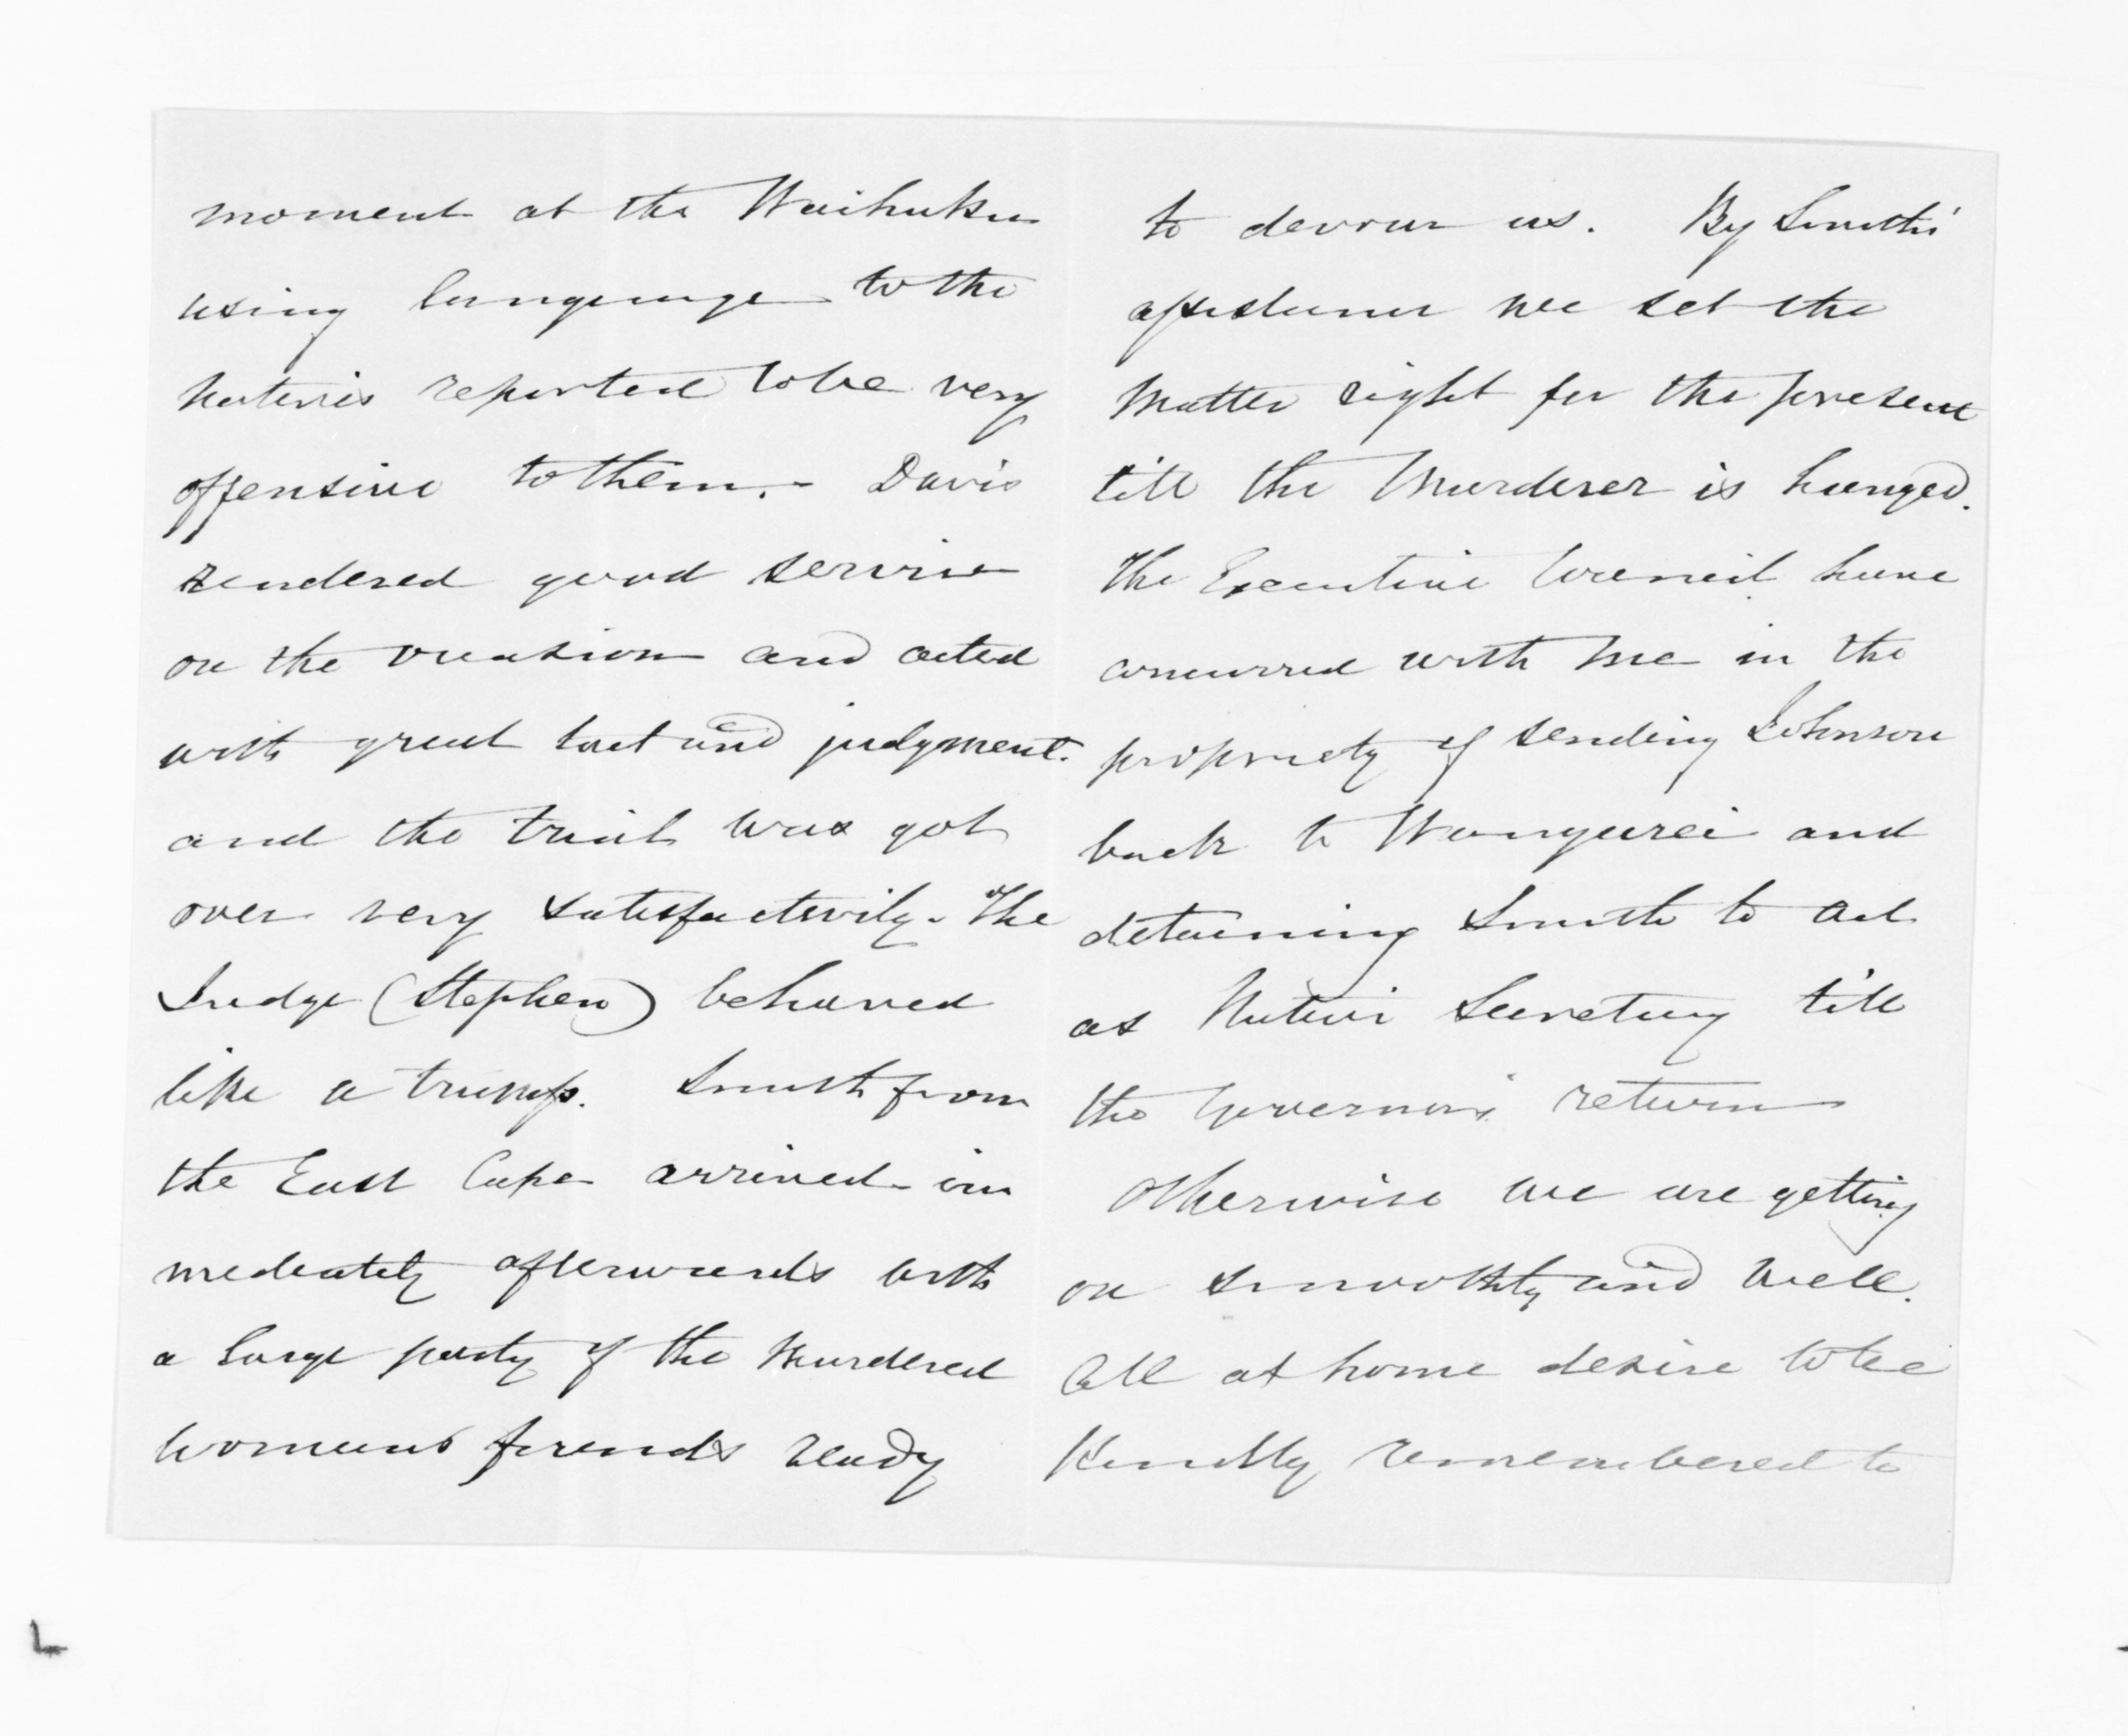 moment at the Waihuku
using language to the
natives reported to be very
offensive to them. - Davis
rendered good service
on the occasion and acted
with great tact and judgment.
and the trial was got
over very satisfactorily. The
Judge (Stephen) behaved
like a trump. Smith from
the East Cape arrived im
mediately afterwards with
a large party of the murdered
womans friends ready
to devour us. By Smith's
assistance we set the
matter right for the present
till the Murderer is hanged.
The Executive Council have
concurred with me in the
propriety of sending Johnson
back to Wangarei and
detaining Smith to act
as Native Secretary till
the Governor's return
Otherwise we are getting
on smoothly and well.
All at home desire to be
Kindly remembered to